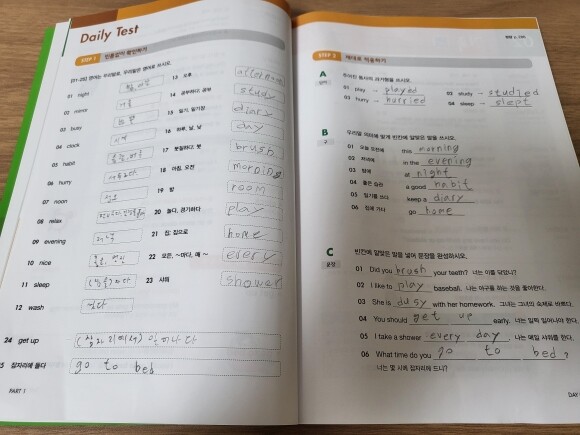 Daily Test
STEP 1 빈틈없이 확인하기
[01-25] 영어는 우리말로, 우리말은 영어로 쓰시오.
01 night
02 mirror
03 busy
04 clock
05 habit
06 hurry
07 noon
08 relax
09 evening
10 nice
11 sleep
12 wash
밤
거울
바쁜
시계
정오
저녁
13 오후 afternoon
14 공부하다; 공부 study
15 일기, 일기장 diary
16 하루, 날, 낮 day
17 붓질하다; 붓 brush
18 아침, 오전 morning
19 방 room
20 놀다, 경기하다 play
21 집; 집으로 home
22 모든, ~마다, 매 ~ every
23 샤워 shower
24 get up 일어나다
25 잠자리에 들다 go to bed
PART 1
STEP 2 제대로 적용하기
A
주어진 동사의 과거형을 쓰시오.
01 play → played 02 study → studied
03 hurry → hurried 04 sleep → slept
B
구
우리말 의미에 맞게 빈칸에 알맞은 말을 쓰시오.
01 오늘 오전에 this morning
02 저녁에 in the evening
03 밤에 at night
04 좋은 습관 a good habit
05 일기를 쓰다 keep a diary
06 집에 가다 go home
C
문장
빈칸에 알맞은 말을 넣어 문장을 완성하시오.
01 Did you brush your teeth? 너는 이를 닦았니?
02 I like to play baseball. 나는 야구를 하는 것을 좋아한다.
03 She is dusy with her homework. 그녀는 그녀의 숙제로 바쁘다.
04 You should get up early. 너는 일찍 일어나야 한다.
05 I take a shower every day. 나는 매일 샤워를 한다.
06 What time do you go to bed?
너는 몇 시에 잠자리에 드니?
DAY